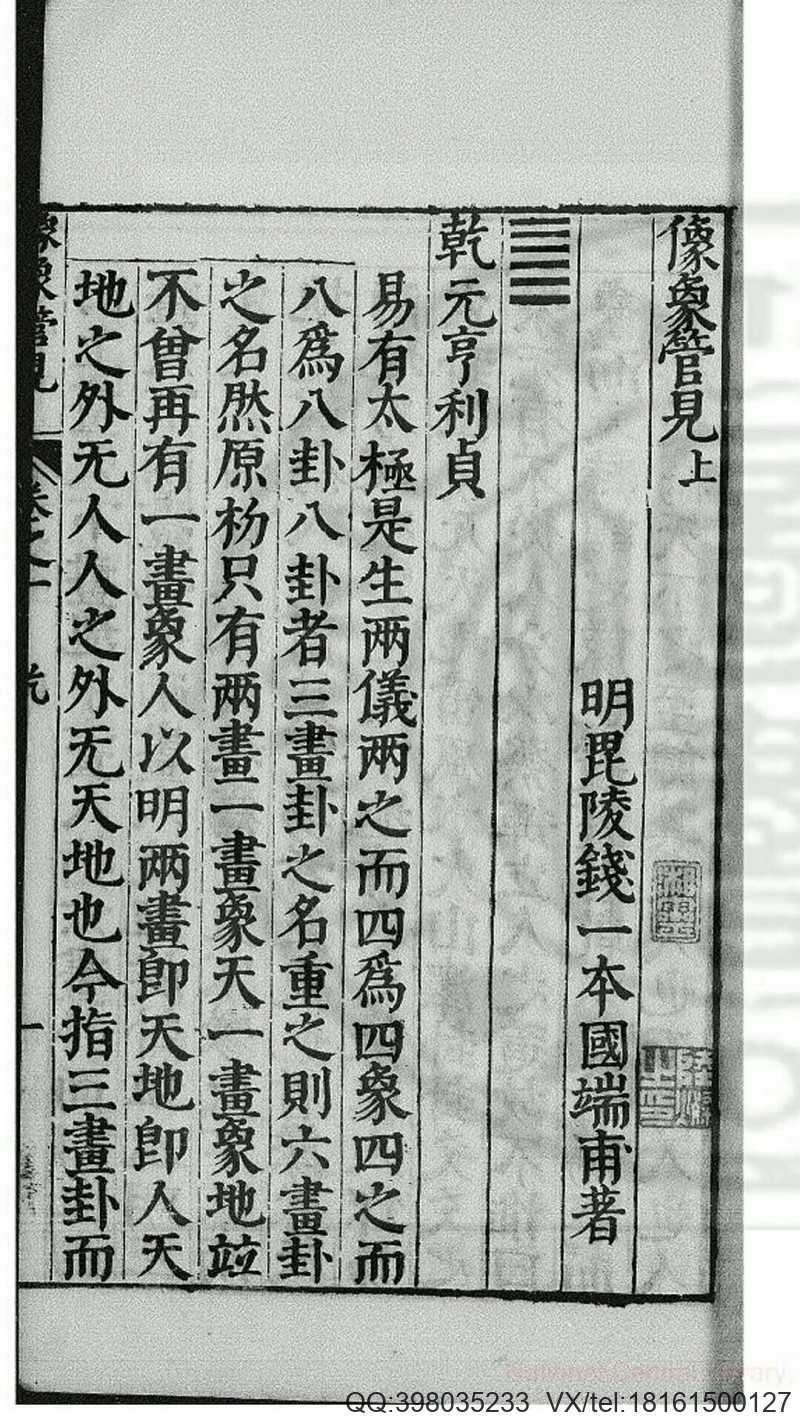 像象管見上
明毘陵錢一本國端甫著
乾元亨利貞
易有太極是生兩儀兩之而四爲四象四之而
八爲八卦八卦者三畫卦之名重之則六畫卦
之名然原初只有兩畫一畫象天一畫象地竝
不曾再有一畫象人以明兩畫卽天地卽人天
地之外无人人之外无天地也今指三畫卦而
像象管見
卷之一
乾
一
National Central Library,
QQ:398035233 VX/tel:18161500127